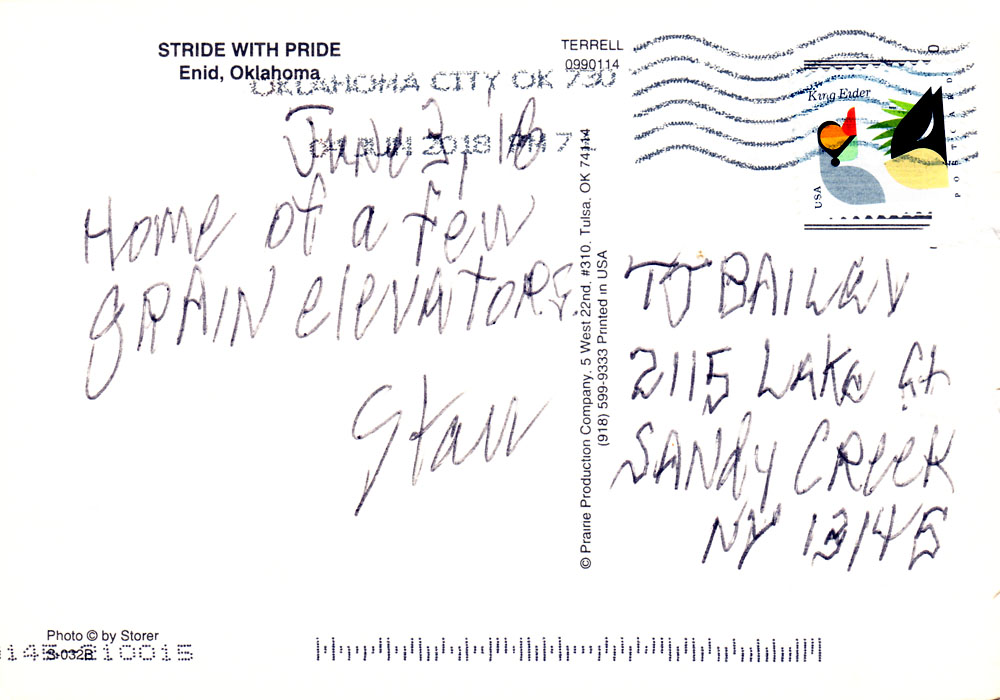 STRIDE WITH PRIDE
Enid, Oklahoma
TERRELL
0990114
OKLAHOMA CITY OK 730
JUN 2018 PM 7
King Eider
USA
POSTCARD
June 3, 18
Home of a few
grain elevators.
Stan
TJ BAILEY
2115 LAKE St
SANDY CREEK
NY 13145
© Prairie Production Company, 5 West 22nd, #310, Tulsa, OK 74114
(918) 599-9333 Printed in USA
Photo © by Storer
S-032B
145-210015